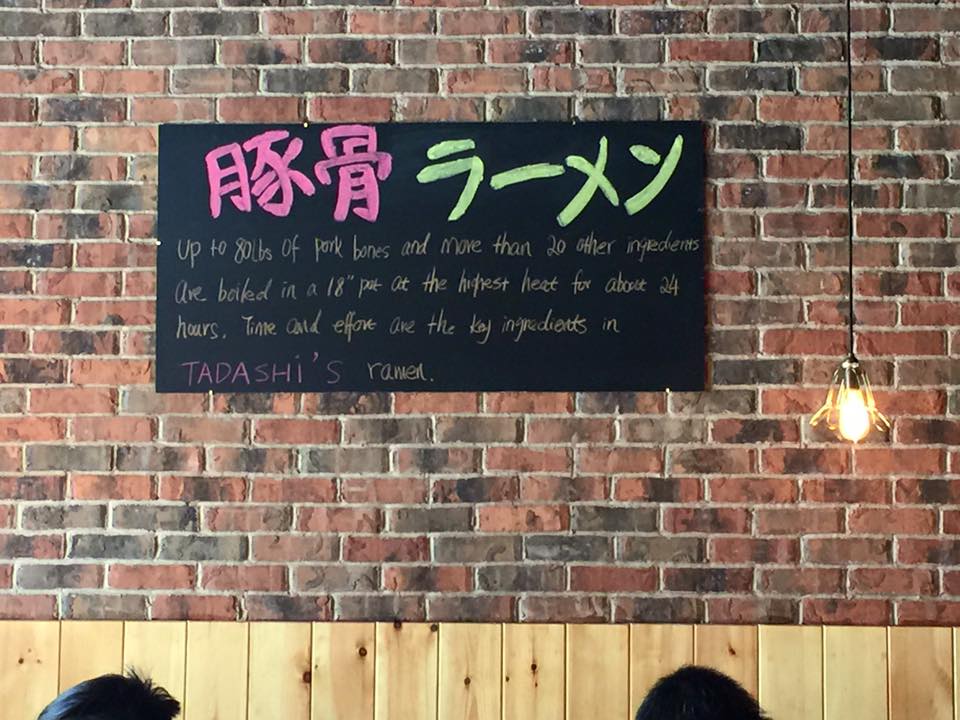 豚骨 ラーメン
Up to 80lbs of pork bones and more than 20 other ingredients
are boiled in a 18" pot at the highest heat for about 24
hours. Time and effort are the key ingredients in
TADASHi'S ramen.